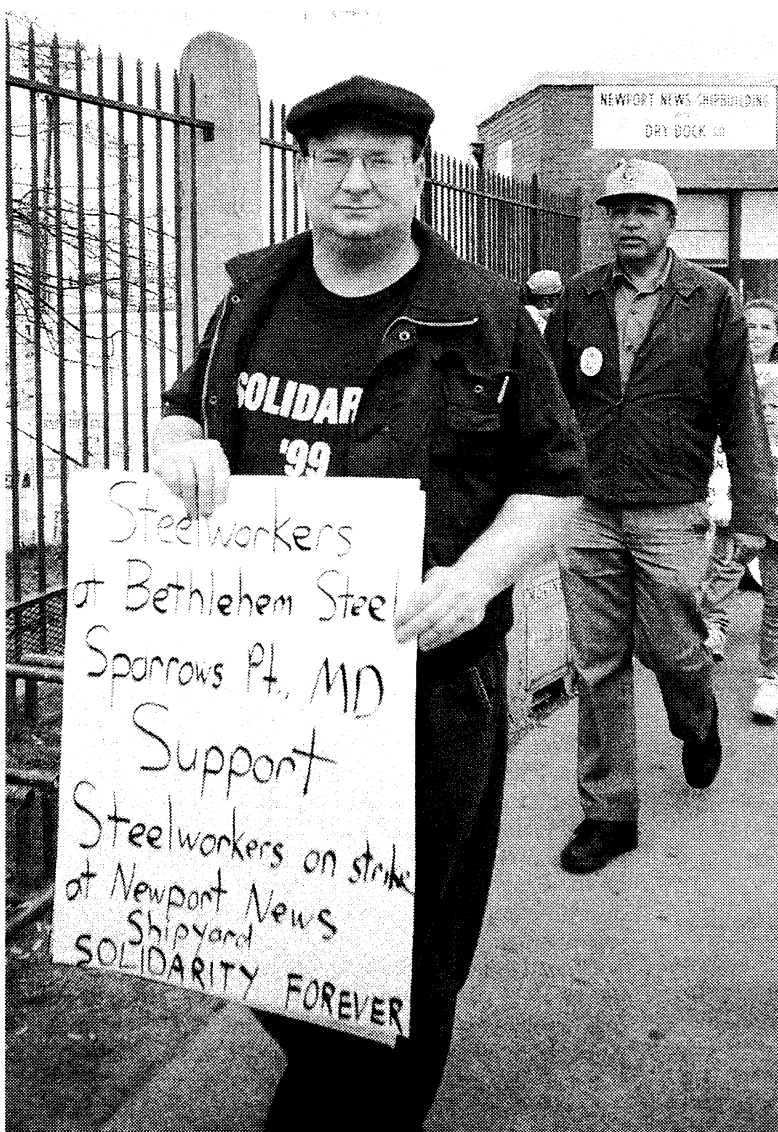 NEWPORT NEWS SHIPBUILDING
DRY DOCK CO.
SOLIDAR
'99
Steelworkers
at Bethlehem Steel
Sparrows Pt., MD
Support
Steelworkers on strike
at Newport News
Shipyard
SOLIDARITY FOREVER